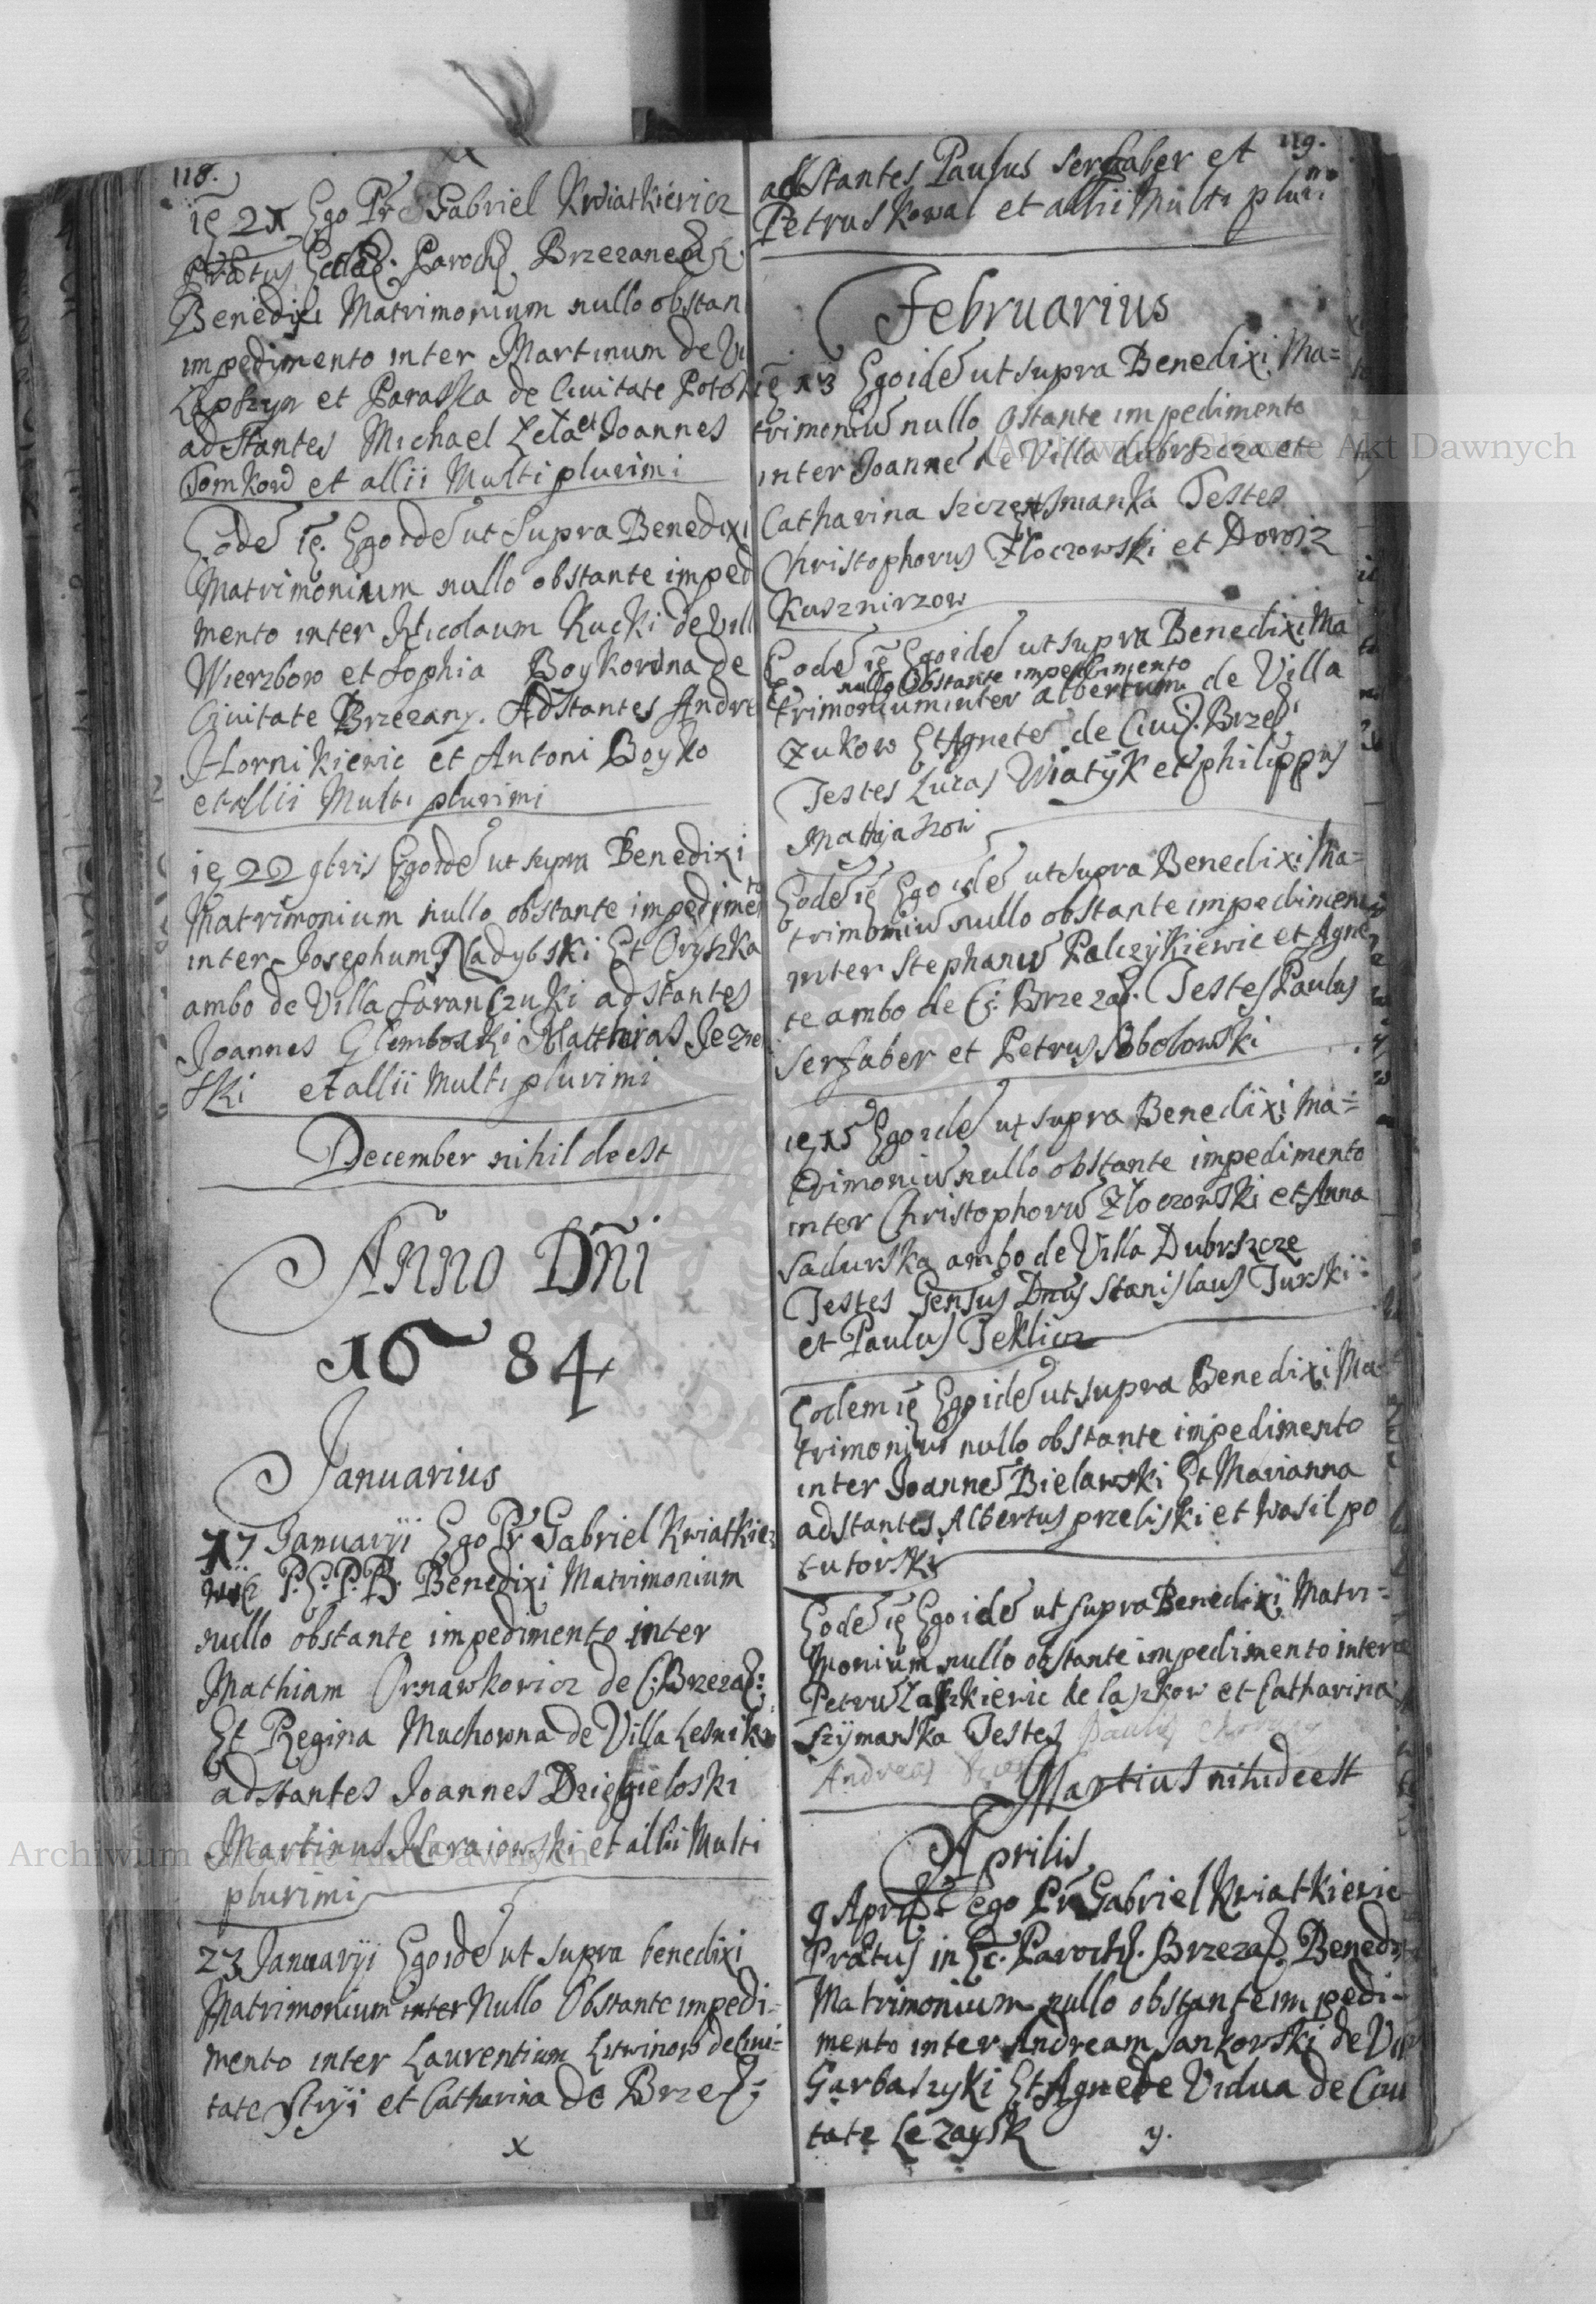 118.
ię 21 Ego Pr Gabriel Kwiatkiewicz
Prætus Eccle. Paroch. Brzezanen
Benedixi Matrimonium nullo obstan
impedimento inter Martinum de Vi
et Paraska de Civitate
adstantes Michael Zeta et Joannes
Tomkow et allii Multi plurimi
Eode ię. Ego ide ut Supra Benedixi
Matrimonium nullo obstante imped
mento inter Nicolaum Kucki de Vill
Wierzbow et Sophia Boykowna de
Civitate Brzezany. Adstantes Andre
Hornikiewic et Antoni Boyko
et allii Multi plurimi
ię 22 9bris Ego ide ut supra Benedixi
Matrimonium nullo obstante impedimen
to
inter Josephum Nadybski Et Oryszka
ambo de Villa Saranczuki adstantes
Joannes Glembocki Matthias Jezie
rski et allii Multi plurimi
December nihil deest
Anno Dñi
1684
Januarius
17 Januarÿi Ego Pr Gabriel Kwiatkie
wic P. E. P. B. Benedixi Matrimonium
nullo obstante impedimento inter
Mathiam Ornawkowicz de C: Brzeza:
Et Regina Muchowna de Villa Lesniki
adstantes Joannes
Martinus Haraiowski et allii Multi
plurimi
23 Januarÿi Ego ide ut supra benedixi
Matrimonium inter Nullo Obstante impedi=
mento inter Laurentium Litwinow de Civi=
tate Stryi et Catharina de Brzez:
x
119.
adstantes Paulus Serfaber et
Petrus Kowal et allii Multi pluri
mi
Februarius
ię 13 Ego ide ut supra Benedixi Ma=
trimoniu nullo obstante impedimento
inter Joanne de Villa dubrszcza et
Catharina Szczęsnianka Testes
Christophorus Złoczowski et
Kusznirzow
Eode ię Ego ide ut supra Benedixi Ma
nullo Obstante impedimento
trimonium inter albertum de Villa
Zukow Et Agnete de Civi. Brzez
Testes Lucas Wiatÿk et philippus
Mathjaszow
Eode ię Ego ide ut supra Benedixi Ma=
trimoniu nullo obstante impedimen
inter Stephanu Palczÿkiewic et Agne
te ambo de C: Brzeza. Testes Paulus
Serfaber et Petrus Sobolowski
ię 15 Ego ide ut supra Benedixi Ma=
trimoniu nullo obstante impedimento
inter Christophoru Złoczowski et Anna
Sadurska ambo de Villa Dubrszcze
Testes Gensus Dnus Stanislaus Turski
et Paulus Teklicz
Eodem ię Ego ide ut supra Benedixi Ma
trimoniu nullo obstante impedimento
inter Joanne Bielawski Et Marianna
adstantes Albertus przeliski et Wasil po
tutorski
Eode ię Ego ide ut supra Benedixi Matri=
monium nullo obstante impedimento inter
Petru Laszkiewic de laszkow et Catharina
Szÿmanska Testes
Andreas
Martius nihil deest
Aprilis
9 Aprilis Ego Pr Gabriel Kwiatkiewic
Prætus in Ec. Paroch. Brzeza. Benedixi
Matrimonium nullo obstante impedi=
mento inter Andream Jankowski de Vil
Garbaszyki Et Agnete Vidua de Civi
tate Lezaysk
y.